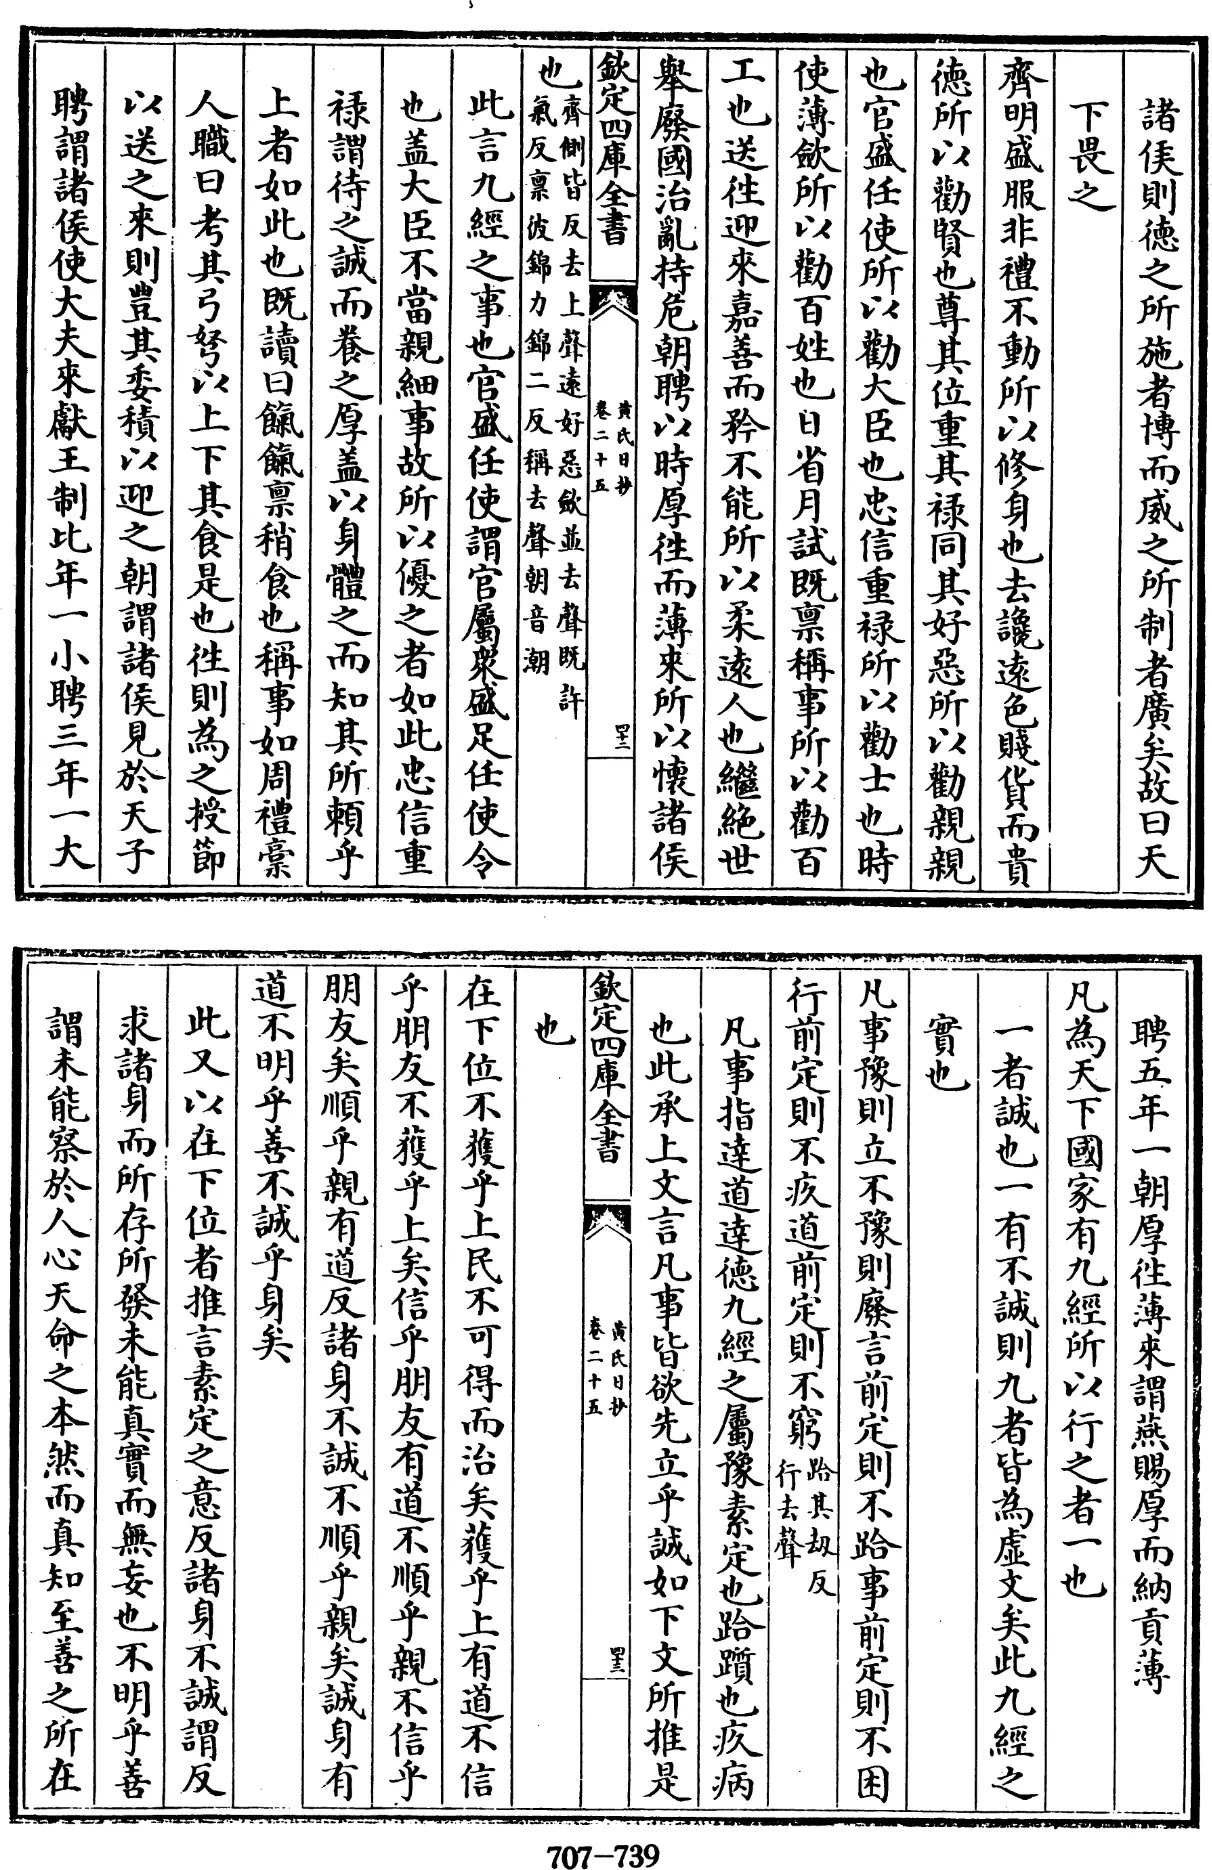 諸侯則德之所施者博而威之所制者廣矣故曰天
下畏之
齊明盛服非禮不動所以修身也去讒遠色賤貨而貴
德所以勸賢也尊其位重其祿同其好惡所以勸親親
也官盛任使所以勸大臣也忠信重祿所以勸士也時
使薄斂所以勸百姓也日省月試既稟稱事所以勸百
工也送徃迎來嘉善而矜不能所以柔遠人也繼絶世
舉廢國治亂持危朝聘以時厚徃而薄來所以懷諸侯
也齊側皆反去上聲遠好惡斂並去聲既許
氣反稟彼錦力錦二反稱去聲朝音潮
此言九經之事也官盛任使謂官屬衆盛足任使令
也盖大臣不當親細事故所以優之者如此忠信重
祿謂待之誠而養之厚盖以身體之而知其所頼乎
上者如此也既讀曰餼餼稟稍食也稱事如周禮稾
人職曰考其弓弩以上下其食是也徃則為之授節
以送之來則豐其委積以迎之朝謂諸侯見於天子
聘謂諸侯使大夫來獻王制比年一小聘三年一大
欽定四庫全書
黄氏日抄
卷二十五
四十二
聘五年一朝厚徃薄來謂燕賜厚而納貢薄
凡為天下國家有九經所以行之者一也
一者誠也一有不誠則九者皆為虛文矣此九經之
實也
凡事豫則立不豫則廢言前定則不跲事前定則不困
行前定則不疚道前定則不窮跲其刼反
行去聲
凡事指達道達德九經之屬豫素定也跲躓也疚病
也此承上文言凡事皆欲先立乎誠如下文所推是
也
在下位不獲乎上民不可得而治矣獲乎上有道不信
乎朋友不獲乎上矣信乎朋友有道不順乎親不信乎
朋友矣順乎親有道反諸身不誠不順乎親矣誠身有
道不明乎善不誠乎身矣
此又以在下位者推言素定之意反諸身不誠謂反
求諸身而所存所發未能真實而無妄也不明乎善
謂未能察於人心天命之本然而真知至善之所在
欽定四庫全書
黄氏日抄
卷二十五
四十三
707-739